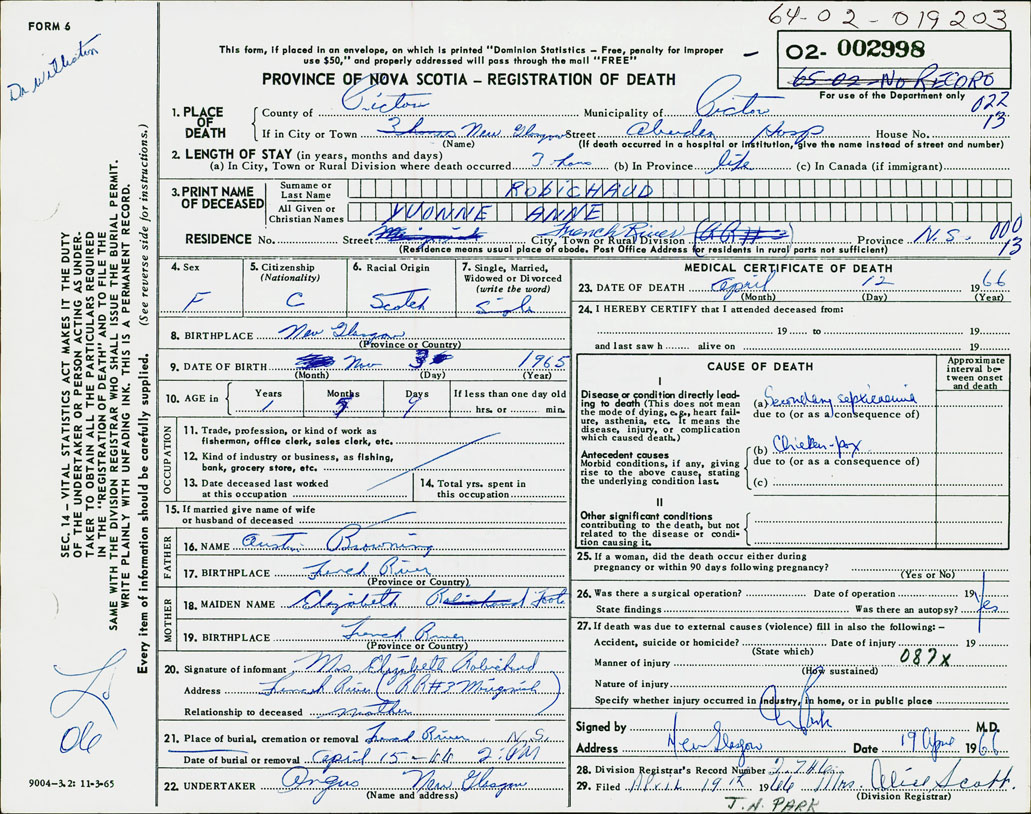 64-02-019203
FORM 6
Dr Williston
This form, if placed in an envelope, on which is printed "Dominion Statistics – Free, penalty for improper
use $50," and properly addressed will pass through the mail "FREE"
02- 002998
65-02-NO RECORD
For use of the Department only
PROVINCE OF NOVA SCOTIA – REGISTRATION OF DEATH
022
13
1. PLACE OF DEATH
County of Pictou Municipality of Pictou
If in City or Town New Glasgow Street Aberdeen Hosp House No.
(Name) (If death occurred in a hospital or institution, give the name instead of street and number)
2. LENGTH OF STAY (in years, months and days)
(a) In City, Town or Rural Division where death occurred 3 hours (b) In Province life (c) In Canada (if immigrant)
3. PRINT NAME OF DECEASED
Surname or Last Name ROBICHAUD
All Given or Christian Names YVONNE ANNE
RESIDENCE No. Street City, Town or Rural Division French River (RR#3) Province N.S.
000
13
(Residence means usual place of abode. Post Office Address for residents in rural parts not sufficient)
4. Sex F
5. Citizenship (Nationality) C
6. Racial Origin Scotch
7. Single, Married, Widowed or Divorced (write the word) Single
8. BIRTHPLACE New Glasgow
(Province or Country)
9. DATE OF BIRTH Nov 3 1965
(Month) (Day) (Year)
10. AGE in Years 1 Months 5 Days 9 If less than one day old hrs. or min.
OCCUPATION
11. Trade, profession, or kind of work as fisherman, office clerk, sales clerk, etc.
12. Kind of industry or business, as fishing, bank, grocery store, etc.
13. Date deceased last worked at this occupation
14. Total yrs. spent in this occupation
15. If married give name of wife or husband of deceased
FATHER
16. NAME Austin Browning
17. BIRTHPLACE French River
(Province or Country)
MOTHER
18. MAIDEN NAME Elizabeth Robichaud Foote
19. BIRTHPLACE French River
(Province or Country)
20. Signature of informant Mrs Elizabeth Robichaud
Address French River (RR#3 Merigomish)
Relationship to deceased mother
21. Place of burial, cremation or removal French River N.S.
Date of burial or removal April 15-66 2:PM
22. UNDERTAKER Angus New Glasgow
(Name and address)
MEDICAL CERTIFICATE OF DEATH
23. DATE OF DEATH April 12 1966
(Month) (Day) (Year)
24. I HEREBY CERTIFY that I attended deceased from:
19 to 19
and last saw h alive on 19
CAUSE OF DEATH
Approximate interval between onset and death
I
Disease or condition directly leading to death (This does not mean the mode of dying, e.g., heart failure, asthenia, etc. It means the disease, injury, or complication which caused death.)
(a) Secondary septicaemia
due to (or as a consequence of)
Antecedent causes
Morbid conditions, if any, giving rise to the above cause, stating the underlying condition last.
(b) Chicken-pox
due to (or as a consequence of)
(c)
II
Other significant conditions
contributing to the death, but not related to the disease or condition causing it.
25. If a woman, did the death occur either during pregnancy or within 90 days following pregnancy?
(Yes or No)
26. Was there a surgical operation? Date of operation 19
State findings Was there an autopsy? Yes
27. If death was due to external causes (violence) fill in also the following: –
Accident, suicide or homicide? Date of injury 19
(State which)
Manner of injury 087X
(How sustained)
Nature of injury
Specify whether injury occurred in industry, in home, or in public place
Signed by J N Park M.D.
Address New Glasgow Date 19 April 1966
28. Division Registrar's Record Number
29. Filed April 19th 1966 Mrs. Alice Scott
(Division Registrar)
J.N. PARK
SEC. 14 – VITAL STATISTICS ACT MAKES IT THE DUTY
OF THE UNDERTAKER OR PERSON ACTING AS UNDER-
TAKER TO OBTAIN ALL THE PARTICULARS REQUIRED
IN THE "REGISTRATION OF DEATH" AND TO FILE THE
SAME WITH THE DIVISION REGISTRAR WHO SHALL ISSUE THE BURIAL PERMIT.
WRITE PLAINLY WITH UNFADING INK. THIS IS A PERMANENT RECORD.
Every item of information should be carefully supplied. (See reverse side for instructions.)
06
9004–3.2: 11-3-65